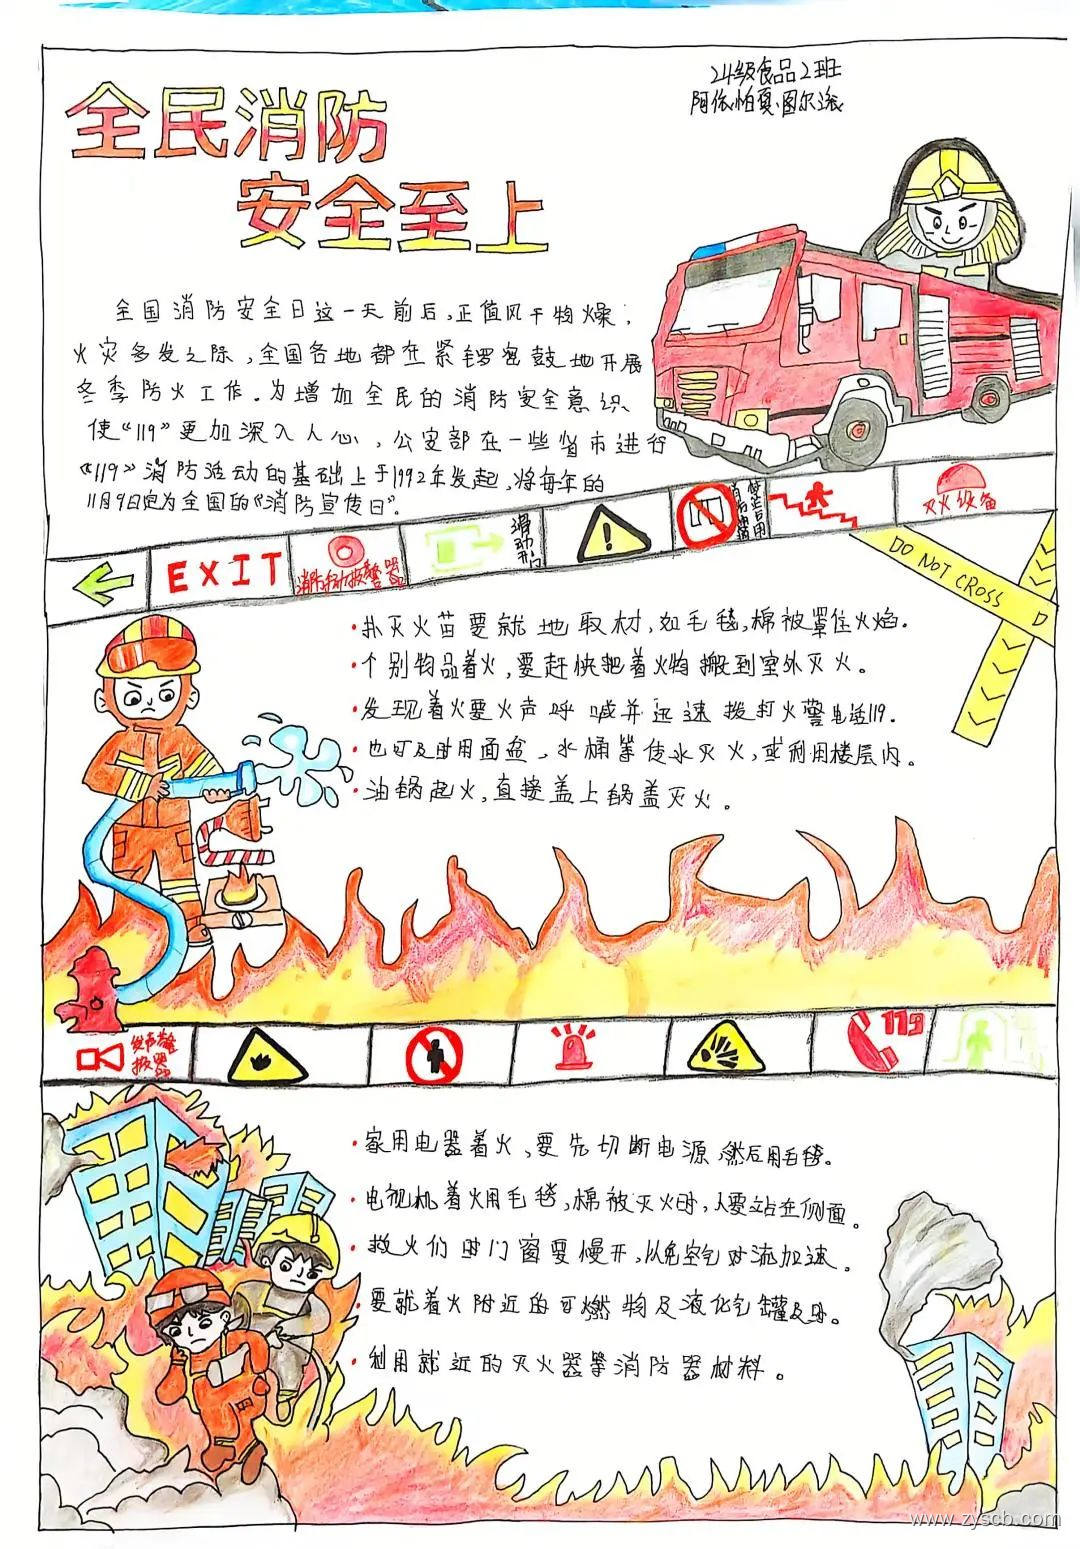 24级食品2班
全民消防
安全至上
全国消防安全日这一天前后,正值风干物燥;
火灾多发之际,全国各地都在紧锣密鼓地开展
冬季防火工作.为增加全民的消防安全意识
使“119”更加深入人心,公安部在一些省市进行
“119”消防活动的基础上于1992年发起,将每年的
11月9日定为全国的“消防宣传日”.
灭火设备
滑动开门
EXIT
消防手动报警器
DO NOT CROSS
D
·扑灭火苗要就地取材,如毛毯,棉被罩住火焰.
·个别物品着火,要赶快把着火物搬到室外灭火。
·发现着火要火声呼喊并迅速拨打火警电话119.
·也可及时用面盆、水桶等传水灭火,或利用楼层内。
·油锅起火,直接盖上锅盖灭火。
发声警报器
119
·家用电器着火,要先切断电源然后用毛毯。
·电视机着火用毛毯,棉被灭火时,人要站在侧面。
·救火们时门窗要慢开,以免空气对流加速。
·要就着火附近的可燃物及液化气罐及时。
·利用就近的灭火器等消防器材料。
www.zyscb.com